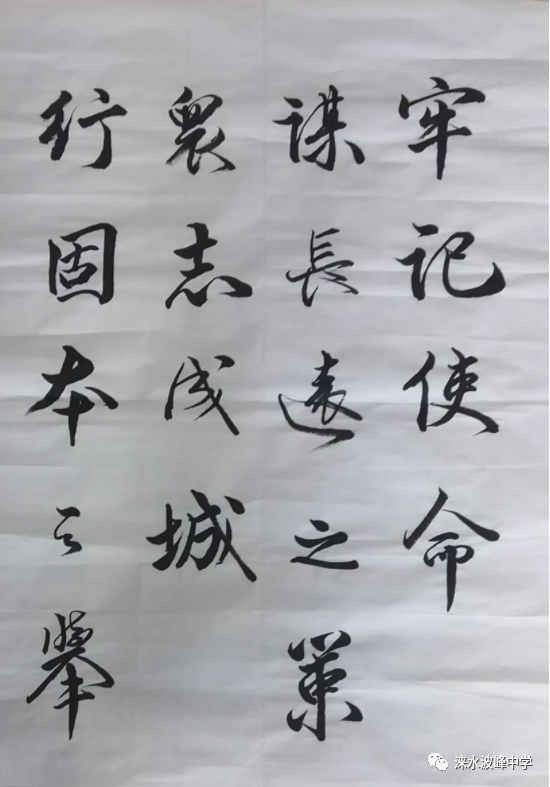 牢记使命
谋長遠之策
眾志成城
行固本之举
涞水波峰中学